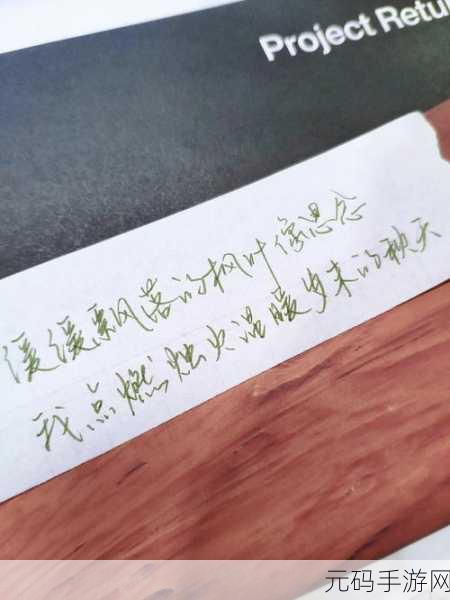 Project Retu
缓缓飘落的枫叶像思念
我点燃烛火温暖岁末的秋天
元码手游网